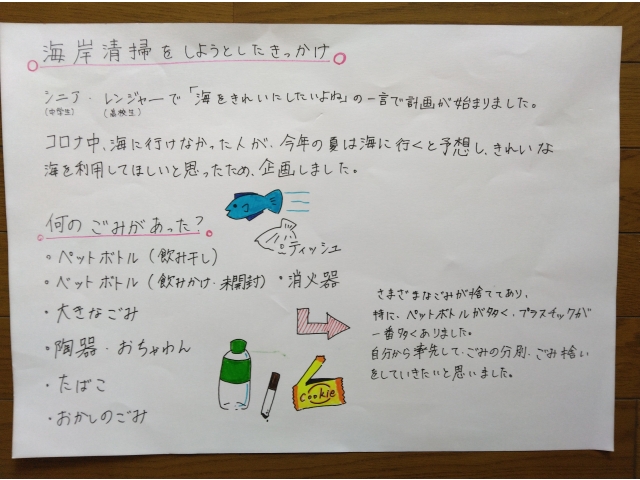 海岸清掃をしようとしたきっかけ
シニア・レンジャーで「海をきれいにしたいよね」の一言で計画が始まりました。
(中学生) (高校生)
コロナ中、海に行けなかった人が、今年の夏は海に行くと予想し、きれいな
海を利用してほしいと思ったため、企画しました。
何のごみがあった?
・ペットボトル(飲み干し)
・ティッシュ
・ペットボトル(飲みかけ・未開封)
・消火器
・大きなごみ
・陶器・おちゃわん
・たばこ
・おかしのごみ
さまざまなごみが捨ててあり、
特に、ペットボトルが多く、プラスチックが
一番多くありました。
自分から率先して、ごみの分別、ごみ拾い
をしていきたいと思いました。
Cookie